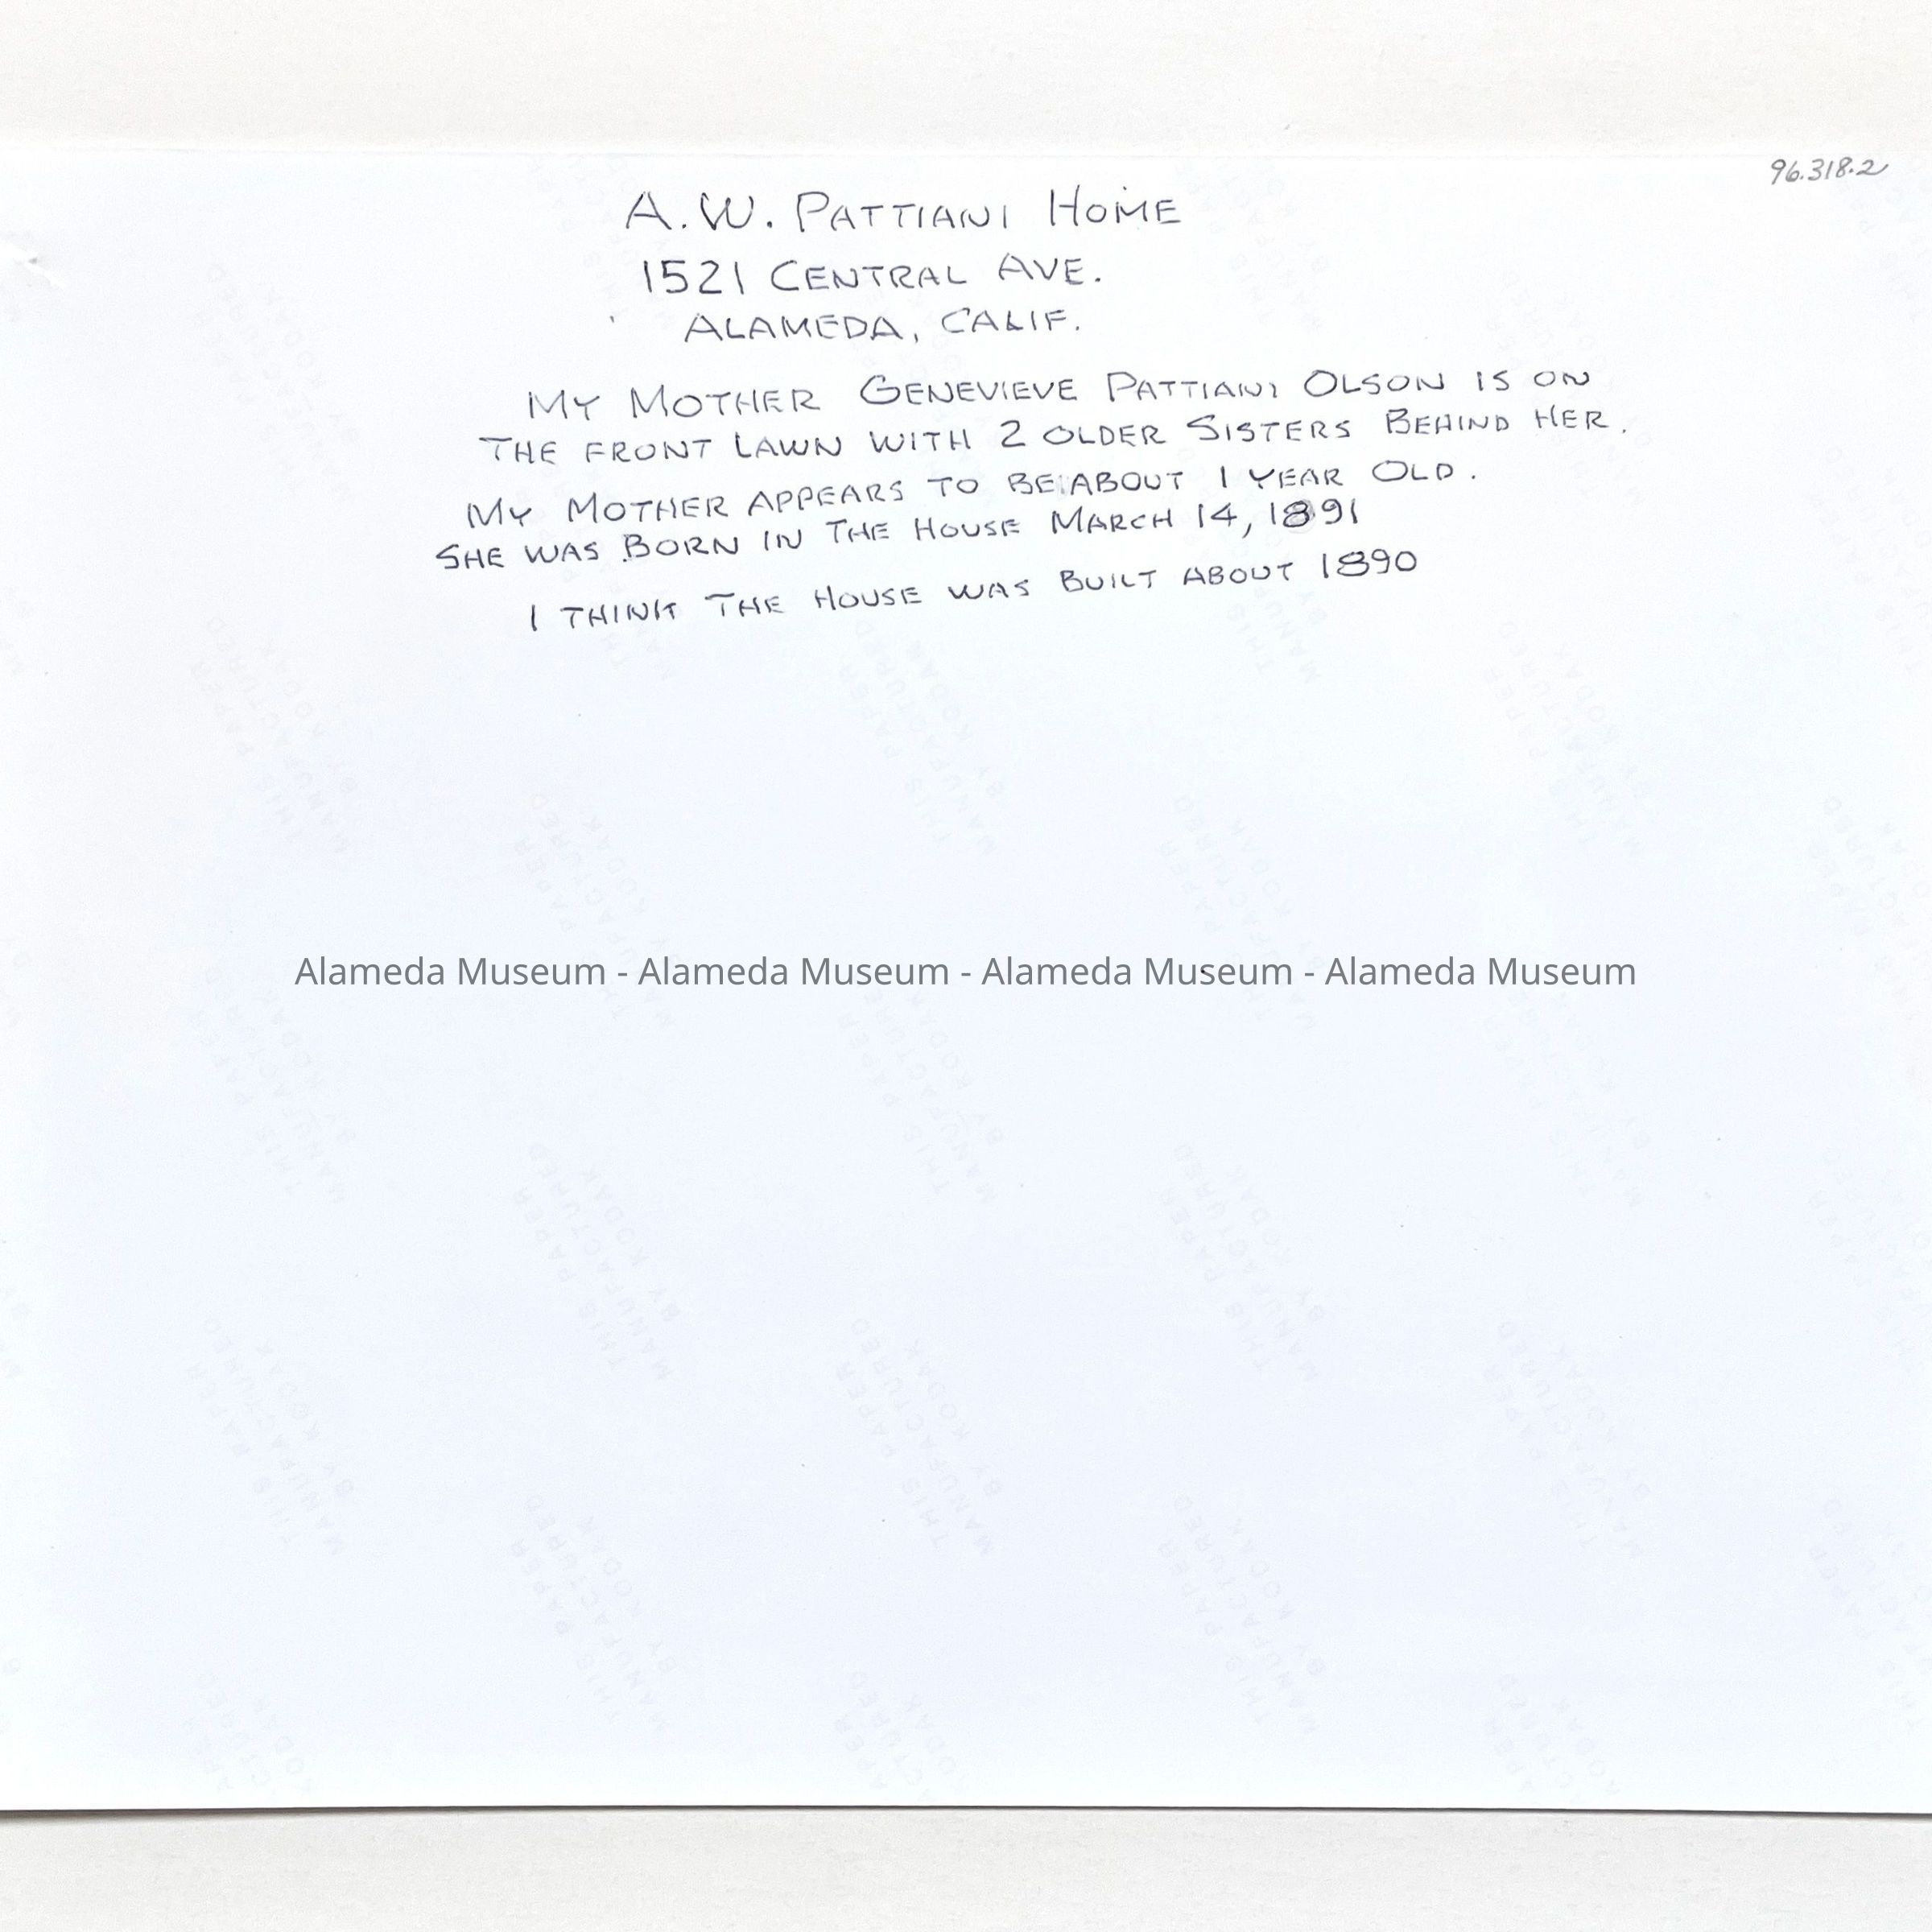 96.318.2
A.W. PATTIANI HOME
1521 CENTRAL AVE.
ALAMEDA, CALIF.
MY MOTHER GENEVIEVE PATTIANI OLSON IS ON
THE FRONT LAWN WITH 2 OLDER SISTERS BEHIND HER.
MY MOTHER APPEARS TO BE ABOUT 1 YEAR OLD.
SHE WAS BORN IN THE HOUSE MARCH 14, 1891
I THINK THE HOUSE WAS BUILT ABOUT 1890
Alameda Museum - Alameda Museum - Alameda Museum - Alameda Museum
THIS PAPER
MANUFACTURED
BY KODAK